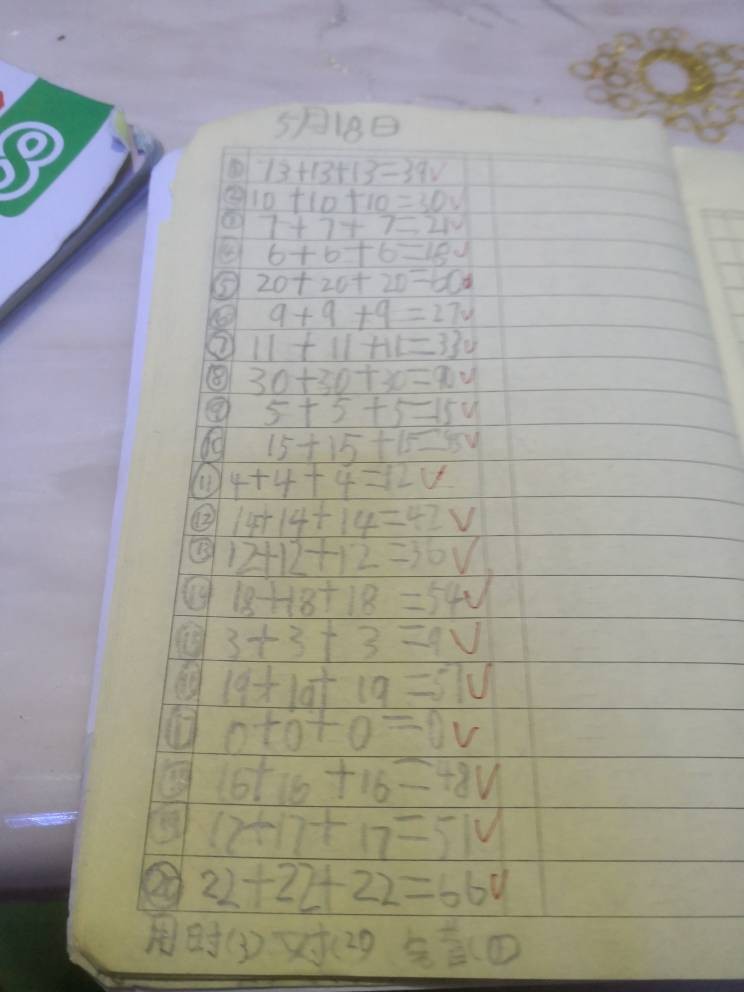 5月18日
① 13+13+13=39✓
② 10+10+10=30✓
③ 7+7+7=21✓
④ 6+6+6=18✓
⑤ 20+20+20=60✓
⑥ 9+9+9=27✓
⑦ 11+11+11=33✓
⑧ 30+30+30=90✓
⑨ 5+5+5=15✓
⑩ 15+15+15=45✓
⑪ 4+4+4=12✓
⑫ 14+14+14=42✓
⑬ 12+12+12=36✓
⑭ 18+18+18=54✓
⑮ 3+3+3=9✓
⑯ 19+19+19=57✓
⑰ 0+0+0=0✓
⑱ 16+16+16=48✓
⑲ 17+17+17=51✓
⑳ 22+22+22=66✓
用时(3) 对(20)